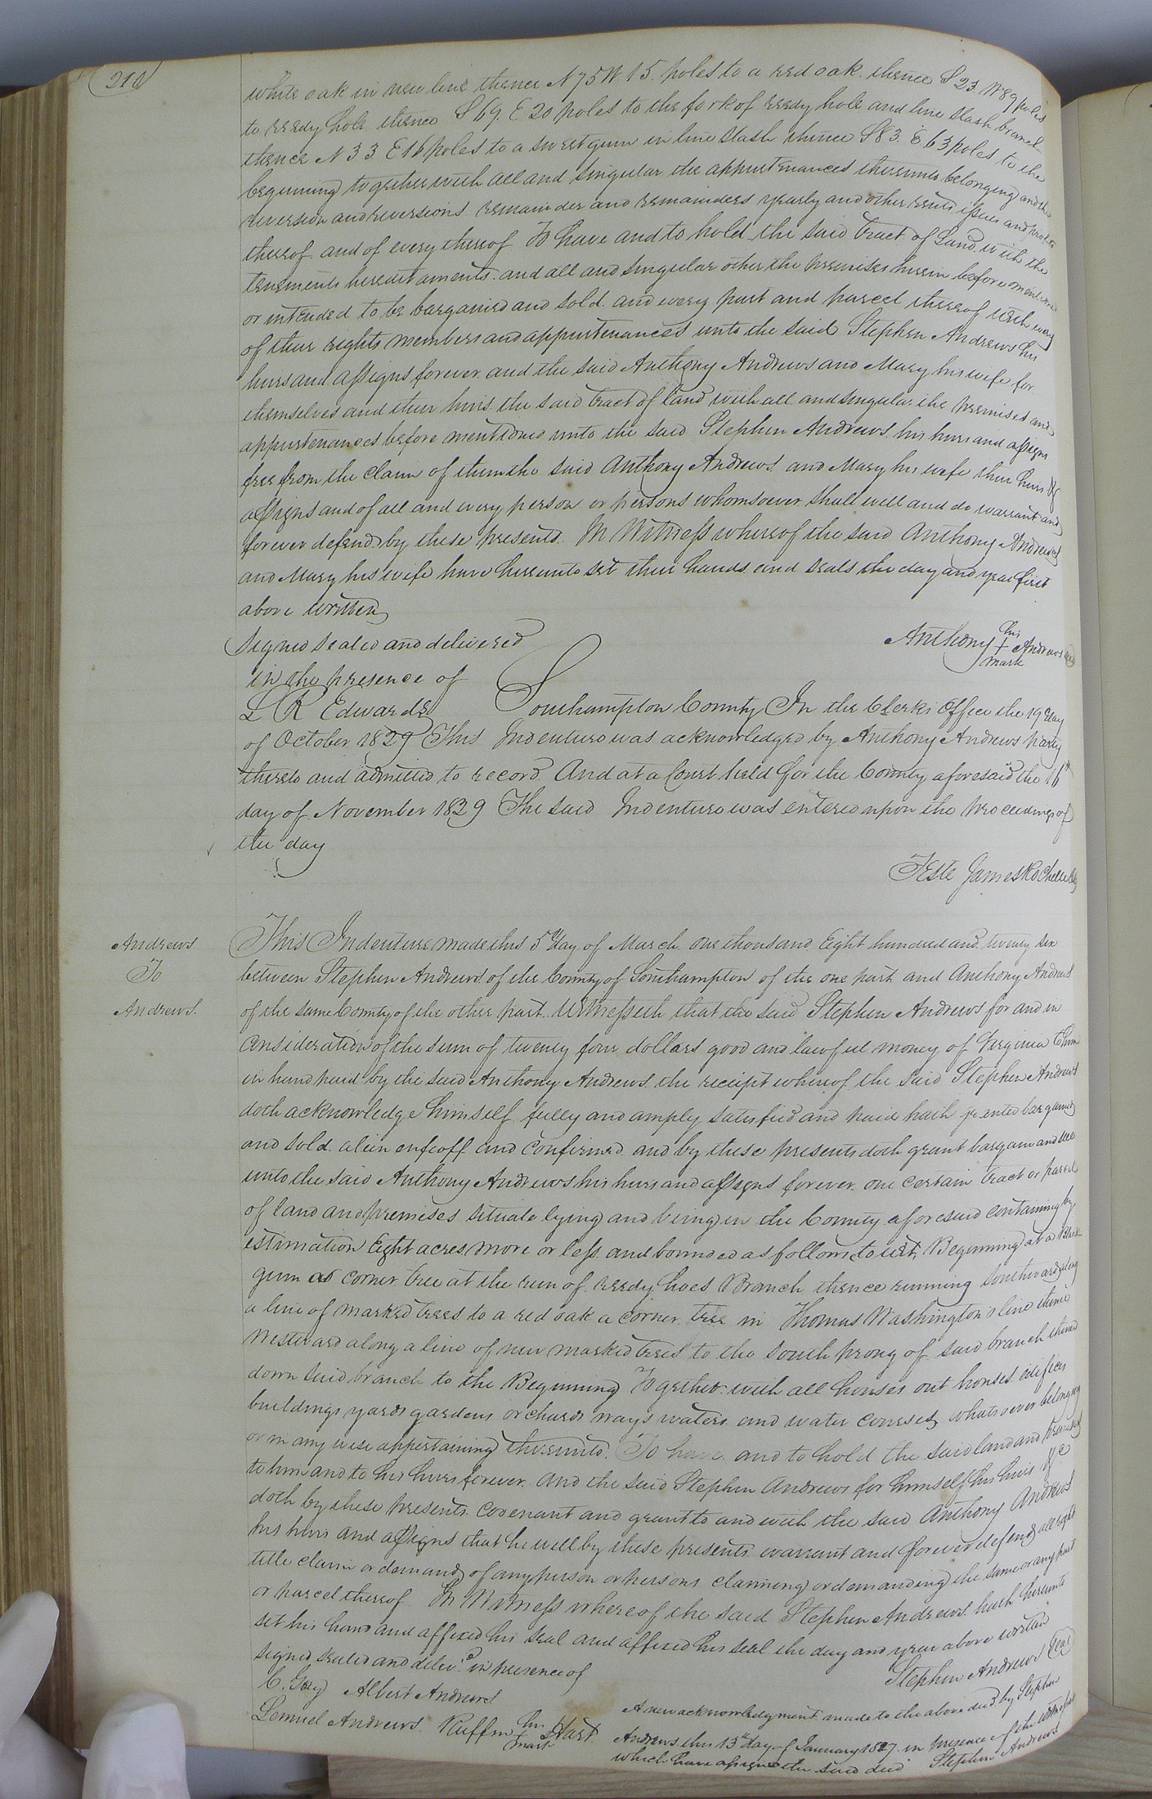 210
white oak in new line thence N 75 W 15 poles to a red oak thence S 23 W 89 poles
to reedy hole thence S 69 E 20 poles to the fork of reedy hole and line slash branch
thence N 33 E 16 poles to a sweet gum in line slash thence S 83 E 63 poles to the
beginning together with all and singular the appurtenances thereunto belonging and the
reversion and reversions remainder and remainders yearly and other rents issues and profits
thereof and of every thereof To have and to hold the said tract of Land with the
tenements hereditaments and all and singular other the premises herein before mentioned
or intended to be bargained and sold and every part and parcel thereof with every
of their rights members and appurtenances unto the said Stephen Andrews his
heirs and assigns forever and the said Anthony Andrews and Mary his wife for
themselves and their heirs the said tract of land with all and singular the premises and
appurtenances before mentioned unto the said Stephen Andrews his heirs and assigns
free from the claim of them the said Anthony Andrews and Mary his wife their heirs &
assigns and of all and every person or persons whomsoever shall will and do warrant and
forever defend by these presents. In Witness whereof the said Anthony Andrews
and Mary his wife have hereunto set their hands and seals the day and year first
above written
Signed sealed and delivered
Anthony his + mark Andrews
in the presence of
L R Edwards
Southampton County In the Clerks Office the 19 day
of October 1829 This Indenture was acknowledged by Anthony Andrews party
thereto and admitted to record. And at a Court held for the County aforesaid the 16th
day of November 1829 The said Indenture was entered upon the proceedings of
the day
Teste James Rochelle
Andrews
To
Andrews.
This Indenture made this 5 day of March one thousand Eight hundred and twenty six
between Stephen Andrews of the County of Southampton of the one part and Anthony Andrews
of the same County of the other part. Witnesseth that the said Stephen Andrews for and in
Consideration of the sum of twenty four dollars good and lawful money of Virginia to him
in hand paid by the said Anthony Andrews the receipt whereof the said Stephen Andrews
doth acknowledge himself fully and amply satisfied and paid hath granted bargained
and sold alien enfeoff and confirmed and by these presents doth grant bargain and sell
unto the said Anthony Andrews his heirs and assigns forever one certain tract or parcel
of land and premises situate lying and being in the County aforesaid containing by
estimation Eight acres more or less and bounded as follows to wit. Beginning at a Black
gum as corner tree at the run of reedy hoes Branch thence running southward along
a line of marked trees to a red oak a corner tree in Thomas Washington's line thence
Westward along a line of new marked trees to the south prong of said branch thence
down said branch to the Beginning Together with all houses out houses edifices
buildings yards gardens orchards ways waters and water courses whatsoever belonging
or in any wise appertaining thereunto. To have and to hold the said land and premises
to him and to his heirs forever. And the said Stephen Andrews for himself his heirs &c
doth by these presents covenant and grant to and with the said Anthony Andrews
his heirs and assigns that he will by these presents warrant and forever defend all right
title claim or demand of any person or persons claiming or demanding the same or any part
or parcel thereof. In Witness whereof the said Stephen Andrews hath hereunto
set his hand and affixed his seal and affixed his seal the day and year above written
signed sealed and deliv.d in presence of
Stephen Andrews Seal
C. Gray Albert Andrews
Lemuel Andrews. Ruffin his + mark Hart
A new acknowledgment made to the above deed by Stephen
Andrews this 13th day of January 1827 in presence of the
which have assigned the said deed Stephen Andrews